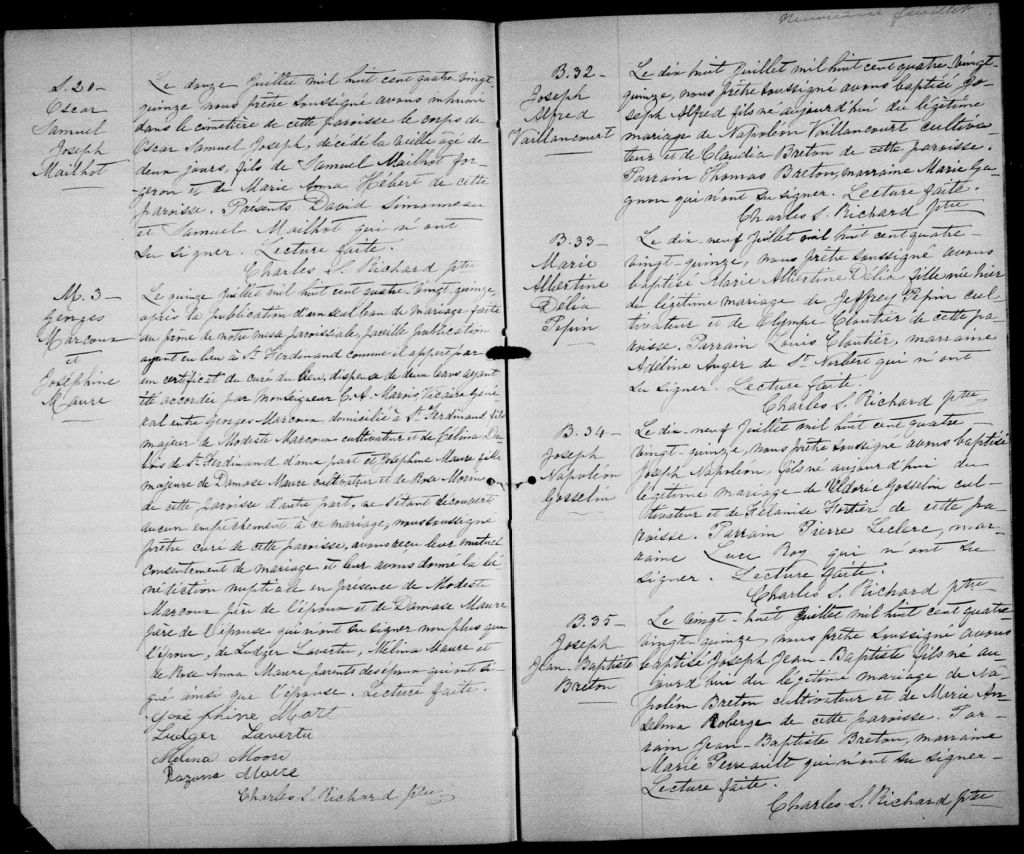 S. 20-
Oscar
Samuel
Joseph
Mailhot
Le douze Juillet mil huit cent quatre vingt
quinze nous prêtre soussigné avons inhumé
dans le cimetière de cette paroisse le corps de
Oscar Samuel Joseph, décédé la veille agé de
deux jours, fils de Samuel Mailhot for-
geron et de Marie Anna Hébert de cette
paroisse. Présents David Simonneau
et Samuel Mailhot qui n'ont
su signer. Lecture faite.
Charles S. Richard ptre
M. 3-
Georges
Marcoux
et
Joséphine
Maure
Le quinze Juillet mil huit cent quatre-vingt quinze,
après la publication d'un seul ban de mariage faite
au prône de notre messe paroissiale, pareille publication
ayant eu lieu à St Ferdinand comme il appert par
un certificat du curé du lieu, dispense de deux bans ayant
été accordée par Monseigneur C. A. Marois Vicaire Géné
ral entre Georges Marcoux domicilié à St Ferdinand fils
majeur de Modeste Marcoux cultivateur et de Célina Du
bois de St Ferdinand d'une part et Joséphine Maure fille
majeure de Damase Maure cultivateur et de Rose Morin
de cette paroisse d'autre part, ne s'étant découvert
aucun empêchement à ce mariage, nous soussigné
prêtre curé de cette paroisse, avons reçu leur mutuel
consentement de mariage et leur avons donné la bé
nédiction nuptiale en présence de Modeste
Marcoux père de l'époux et de Damase Maure
père de l'épouse qui n'ont su signer non plus que
l'époux, de Ludger Lavertu, Mélina Maure et
de Rose Anna Maure parents des époux qui ont si
gné ainsi que l'épouse. Lecture faite.
José phine Mort
Ludger Lavertu
Melina Moore
Rozana Maure
Charles S. Richard ptre
Neuvième feuillet
B. 32-
Joseph
Alfred
Vaillancourt
Le dix huit Juillet mil huit cent quatre vingt-
quinze, nous prêtre soussigné avons baptisé Jo-
seph Alfred fils né aujourd'hui du légitime
mariage de Napoléon Vaillancourt cultiva-
teur et de Claudia Breton de cette paroisse.
Parrain Thomas Breton, marraine Marie Ga-
gnon qui n'ont su signer. Lecture faite.
Charles S. Richard ptre
B. 33-
Marie
Albertine
Délia
Pepin
Le dix-neuf Juillet mil huit cent quatre-
vingt-quinze, nous prêtre soussigné avons
baptisé Marie Albertine Délia fille née hier
du légitime mariage de Jeffrey Pepin cul-
tivateur et de Olympe Cloutier de cette pa-
roisse. Parrain Louis Cloutier, marraine
Adéline Auger de St Norbert qui n'ont
su signer. Lecture faite.
Charles S. Richard ptre
B. 34-
Joseph
Napoléon
Gosselin
Le dix-neuf Juillet mil huit cent quatre-
vingt-quinze, nous prêtre soussigné avons baptisé
Joseph Napoléon fils né aujourd'hui du
légitime mariage de Uldoric Gosselin cul-
tivateur et de Félanise Fortier de cette pa-
roisse. Parrain Pierre Leclerc, mar-
raine Luce Roy qui n'ont su
signer. Lecture faite.
Charles S. Richard ptre
B. 35-
Joseph
Jean-Baptiste
Breton
Le vingt-huit Juillet mil huit cent quatre
vingt-quinze, nous prêtre soussigné avons
baptisé Joseph Jean-Baptiste fils né au-
jourd'hui du légitime mariage de Na-
poléon Breton cultivateur et de Marie An-
selma Roberge de cette paroisse. Par-
rain Jean-Baptiste Breton, marraine
Marie Perreault qui n'ont su signer-
Lecture faite.
Charles S. Richard ptre